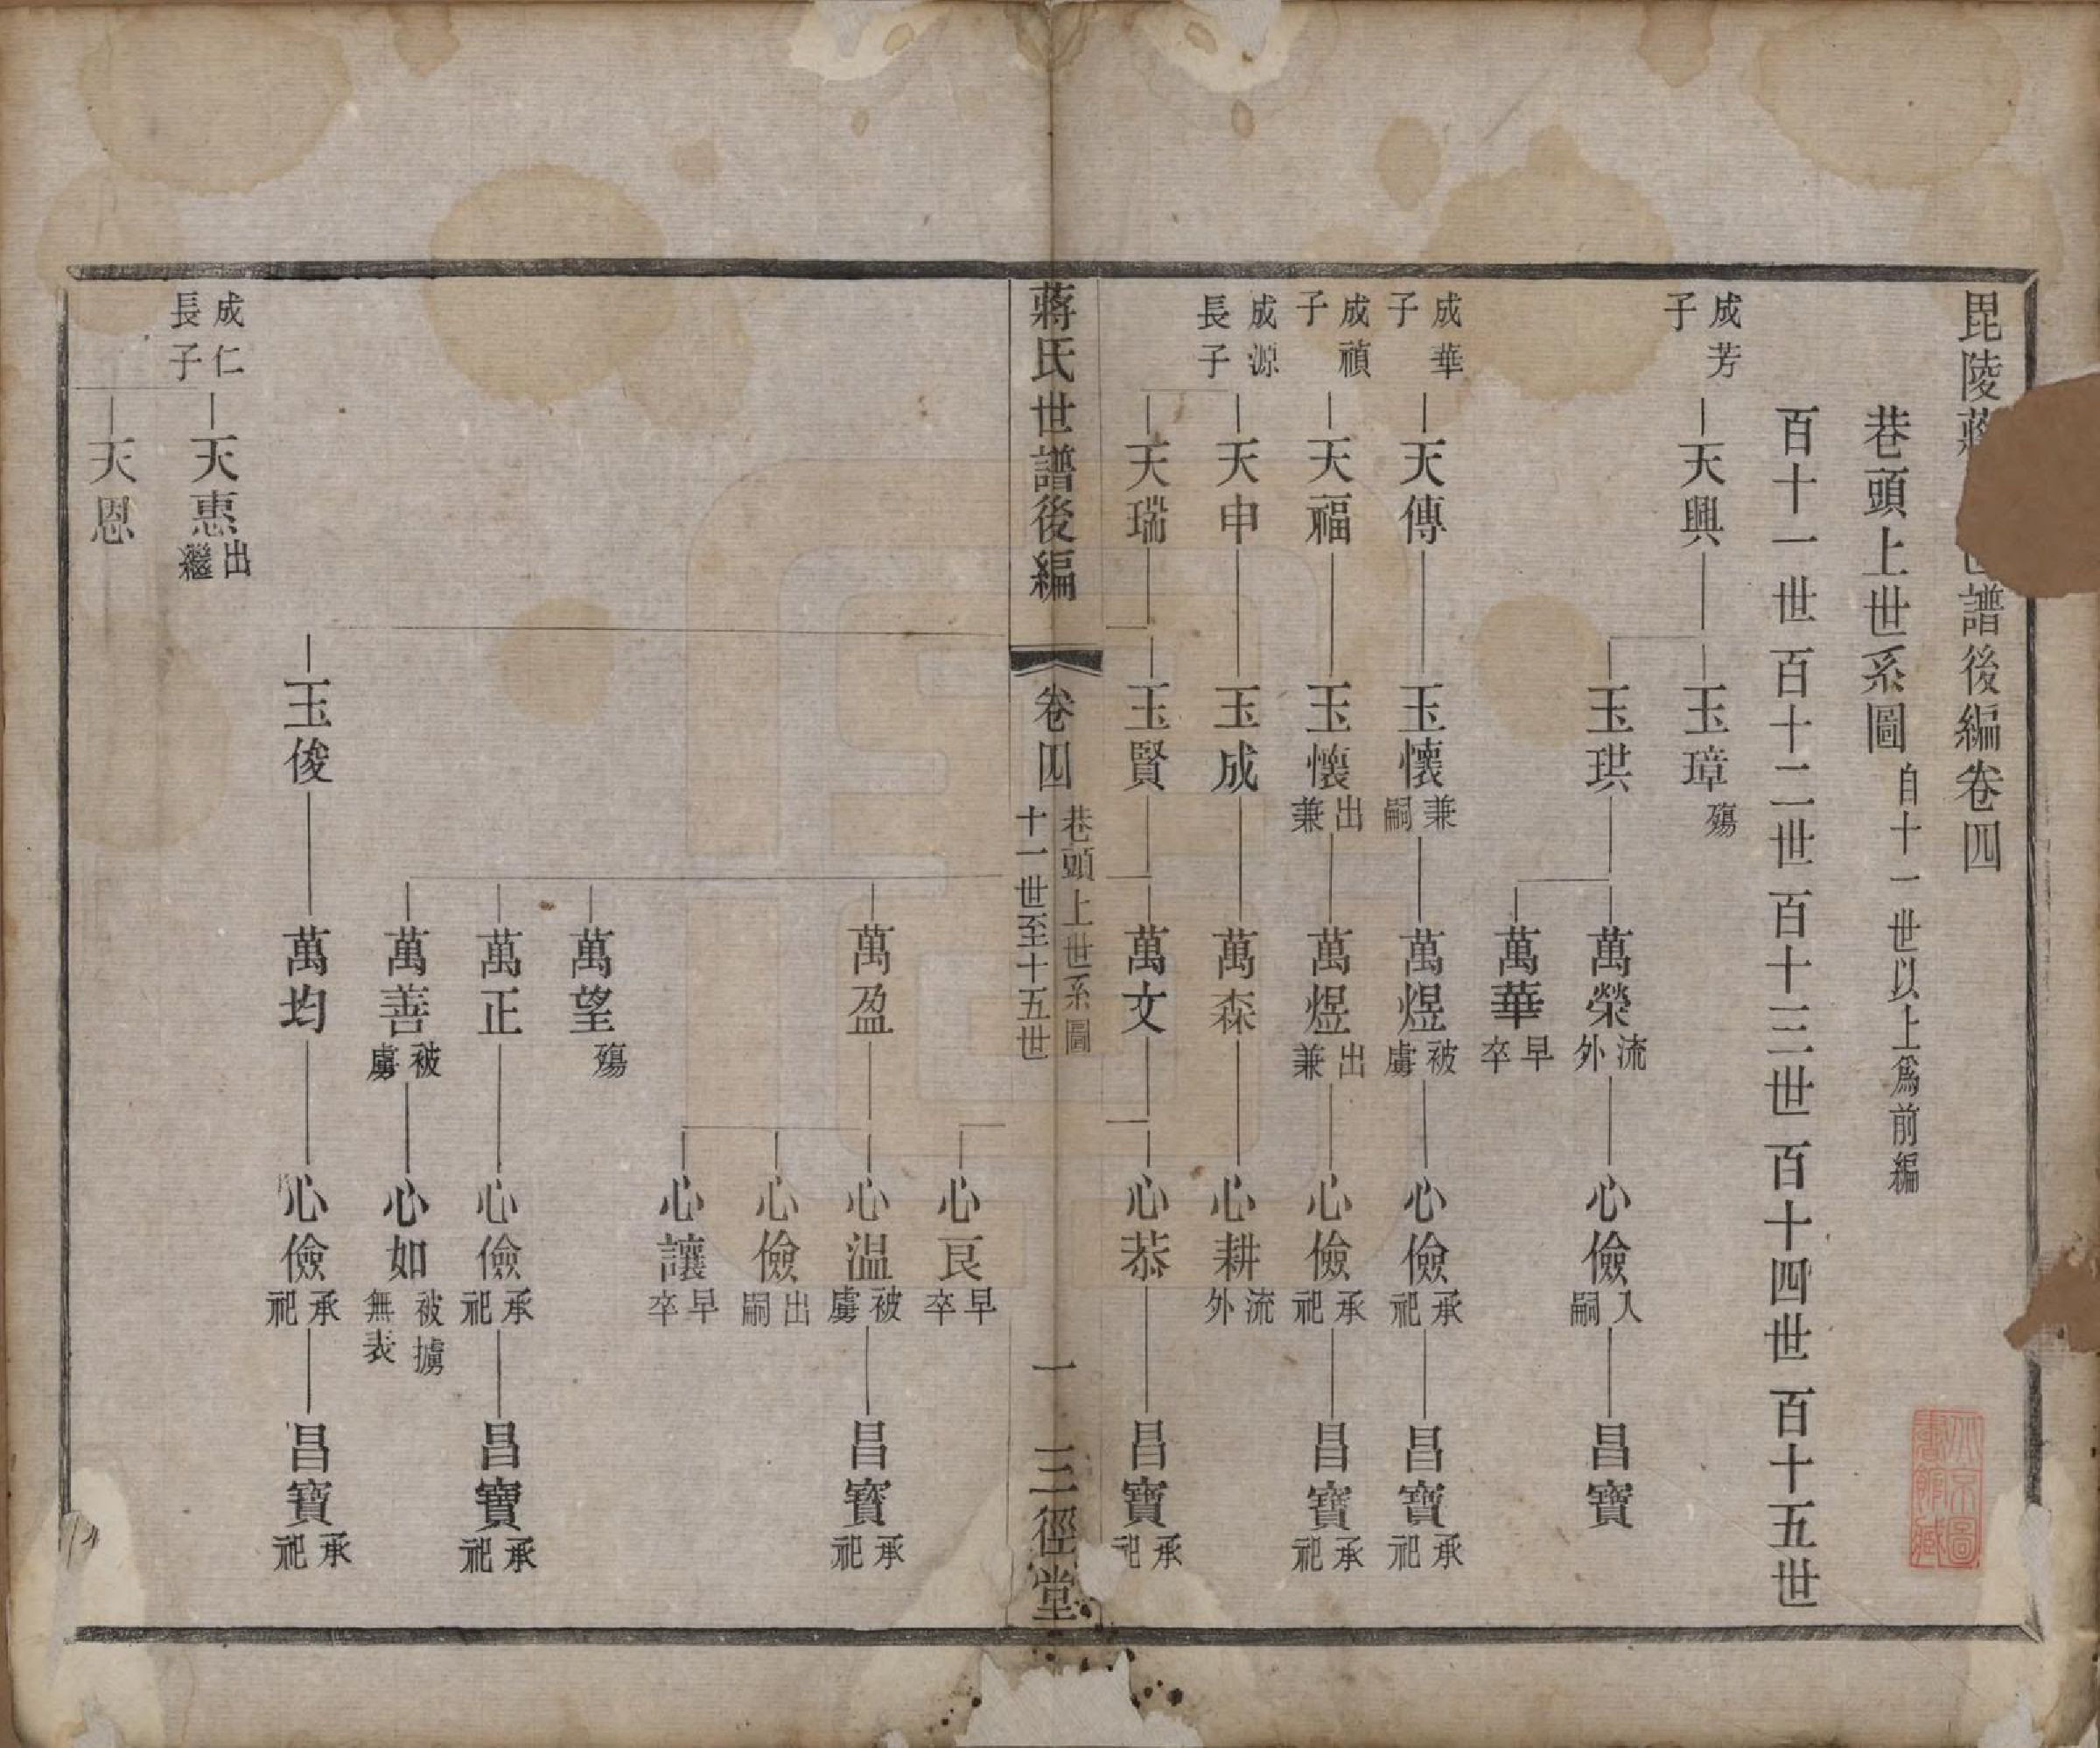 毘陵蔣 譜後編卷四
巷頭上世系圖 自十一世以上爲前編
百十一世 百十二世 百十三世 百十四世 百十五世
成芳子 天興 玉璋 殤
玉珙 萬榮 流外 心儉 入嗣 昌寶
萬華 早卒
成華子 天傳 玉懷 兼嗣 萬煜 被虜 心儉 承祀 昌寶 承祀
成禎子 天福 玉懷 出兼 萬煜 出兼 心儉 承祀 昌寶 承祀
成源長子 天申 玉成 萬森 心耕 流外
天瑞 玉賢 萬文 心恭 昌寶 承祀
蔣氏世譜後編 卷四 巷頭上世系圖 十一世至十五世 一 三徑堂
心良 早卒
萬盈 心温 被虜 昌寶 承祀
心儉 出嗣
心讓 早卒
萬望 殤
萬正 心儉 承祀 昌寶 承祀
萬善 被虜 心如 被擄無表
玉俊 萬均 心儉 承祀 昌寶 承祀
成仁長子 天惠 出繼
天恩